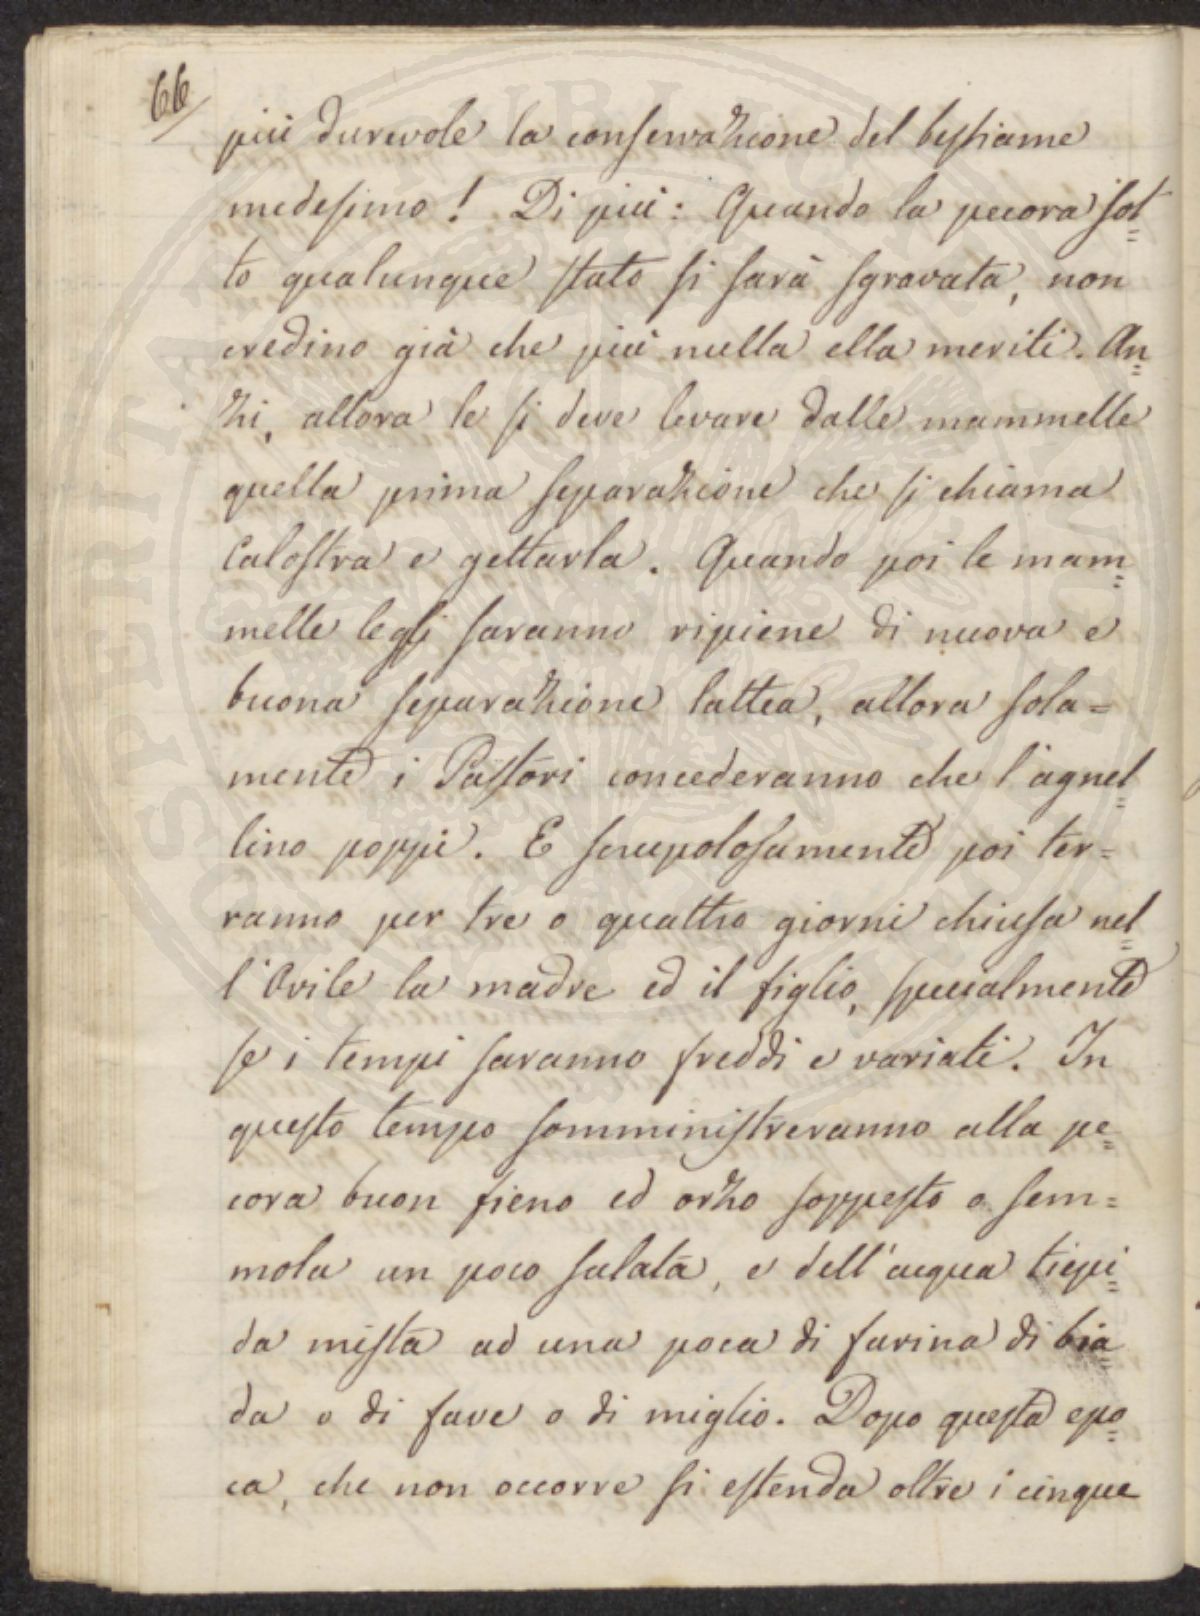 66
più durevole la conservazione del bestiame
medesimo! Di più: Quando la pecora sot=
to qualunque stato si sarà sgravata, non
credino già che più nulla ella meriti. An=
zi, allora le si deve levare dalle mammelle
quella prima separazione che si chiama
Calostra e gettarla. Quando poi le mam=
melle saranno ripiene di nuova e
buona separazione lattea, allora sola=
mente i Pastori concederanno che l'agnel=
lino poppi. E scrupolosamente poi ter=
ranno per tre o quattro giorni chiusa nel=
l'Ovile la madre ed il figlio, specialmente
se i tempi saranno freddi e variati. In
questo tempo somministreranno alla pe=
cora buon fieno ed orzo soppesto o sem=
mola un poco salata, e dell'acqua tiepi=
da mista ad una poca di farina di bia=
da o di fave o di miglio. Dopo questa epo=
ca, che non occorre si estenda oltre i cinque